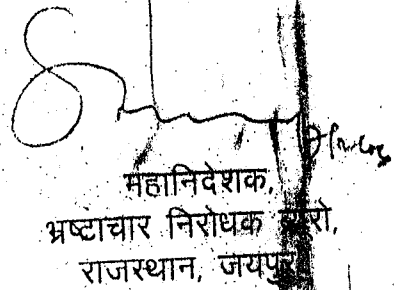 महानिदेशक,
भ्रष्टाचार निरोधक ब्यूरो,
राजस्थान, जयपुर